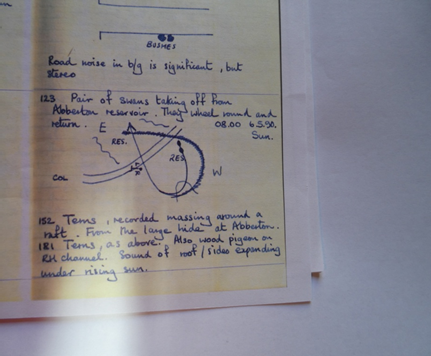 BUSHES
Road noise in b/g is significant, but
stereo
123 Pair of swans taking off from
Abberton reservoir. They wheel round and
return. 08.00 6.5.90.
Sun.
E
RES.
RES
COL
W
152 Terns, recorded massing around a
raft. From the large hide at Abberton.
181 Terns, as above. Also wood pigeon on
RH channel. Sound of roof/sides expanding
under rising sun.